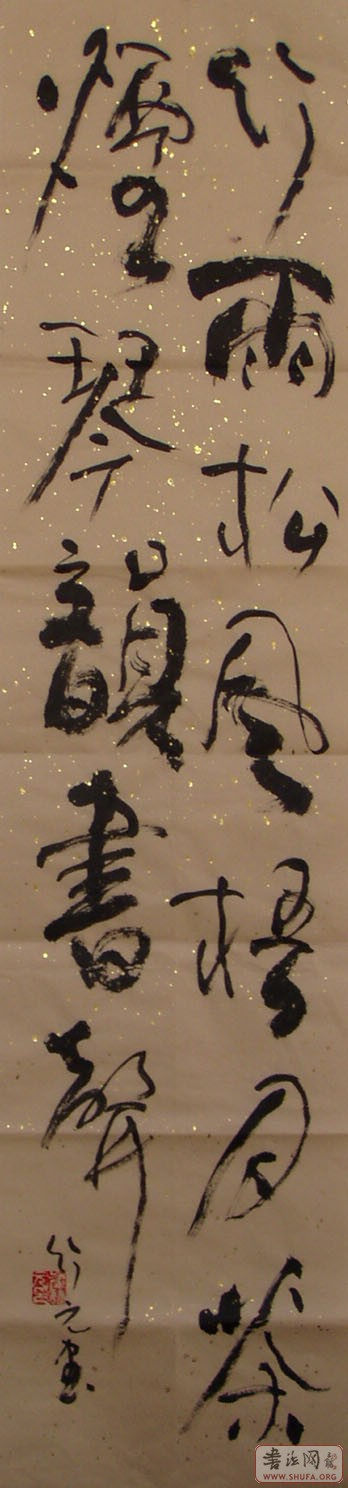 竹雨松風梧月茶
煙琴韻書聲
元書
書法网
WWW.SHUFA.ORG